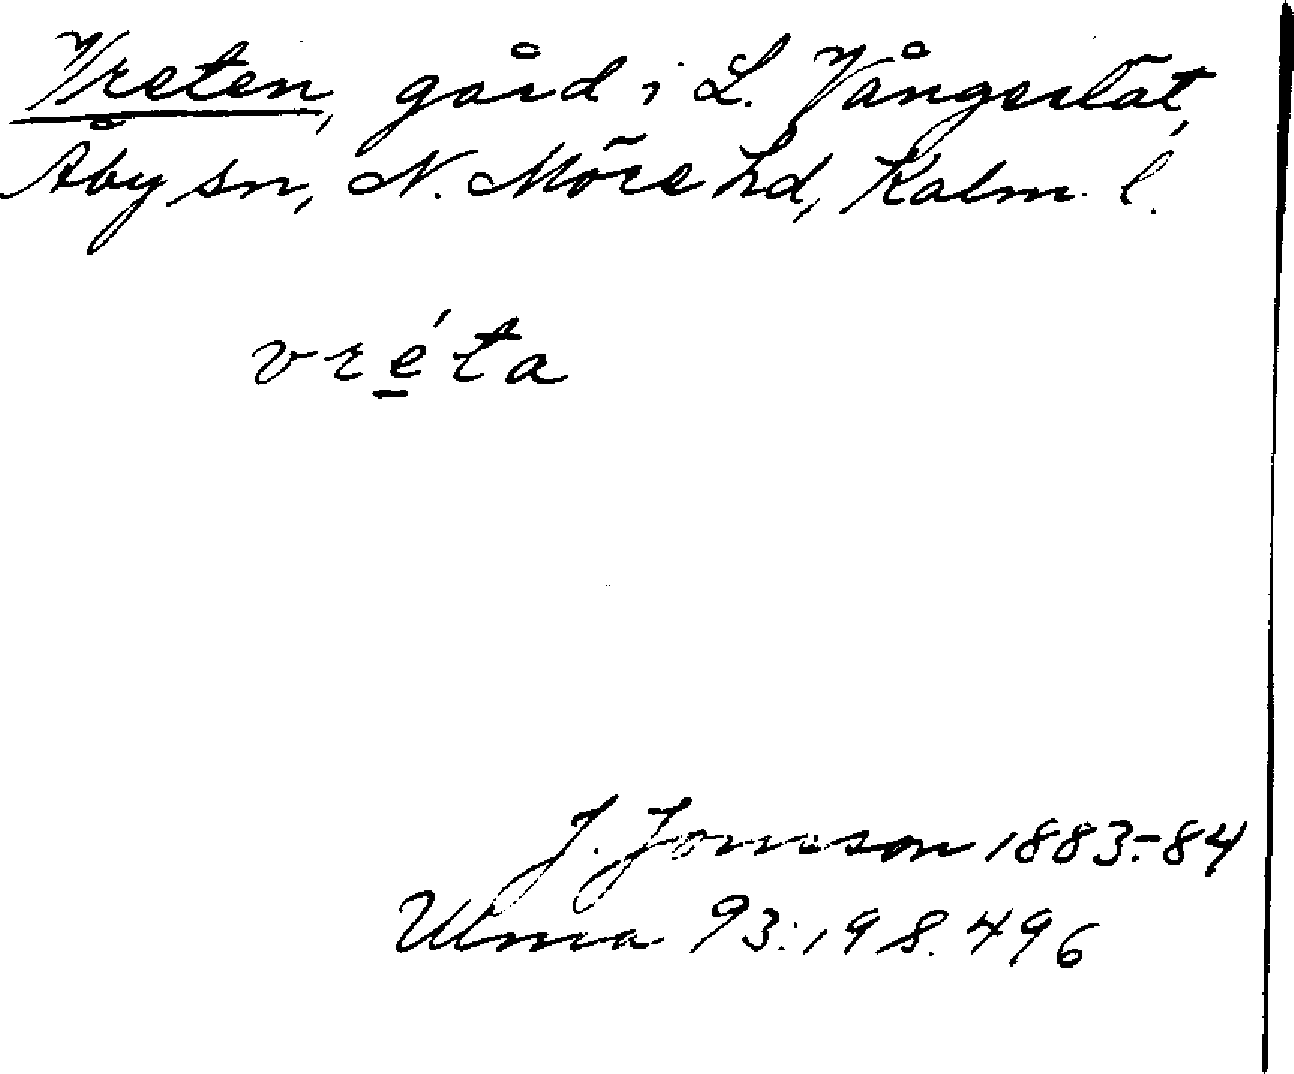 Vreten, gård i L. Vångerslät,
Åby sn, N. Möre hd, Kalm. l.
vréta
J. Jonsson 1883-84
Ulma 93:19 s. 496